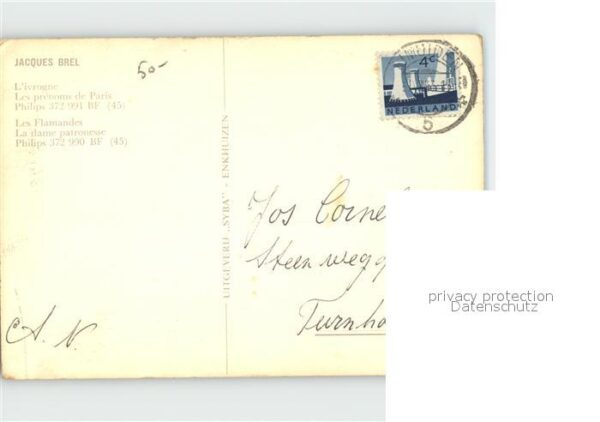 JACQUES BREL
50-
L'ivrogne
Les prénoms de Paris
Philips 372 991 BF (45)
Les Flamandes
La dame patronesse
Philips 372 990 BF (45)
UITGEVERIJ „SYBA" - ENKHUIZEN
4c
NEDERLAND
5
Jos Corne
Steenwegg
Turnho
A. N.
privacy protection
Datenschutz